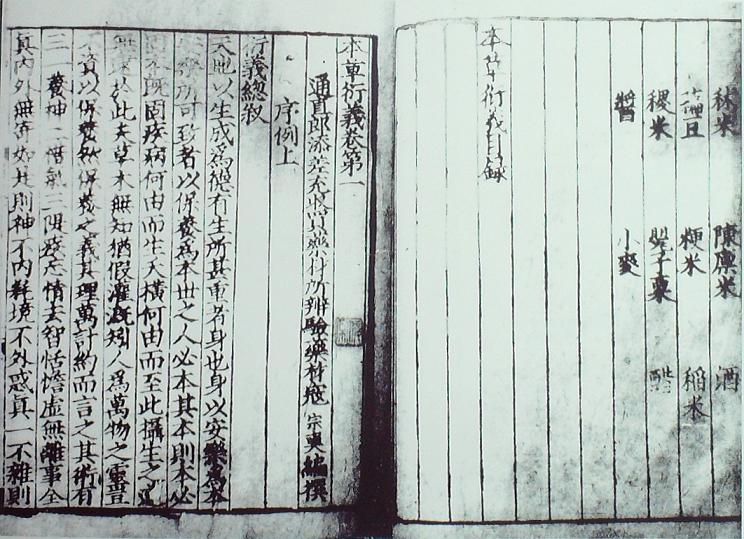 秫米 陳廩米 酒
豆 粳米 稻米
稷米 罌子粟 醋
醬 小麥
本草衍義目録
本草衍義卷第一
通直郎添差充收買藥材所辨驗藥材寇宗奭編撰
序例上
衍義總敘
天地以生成爲德有生所甚重者身也身以安樂爲本
安樂所可致者以保養爲本世之人必本其本則本必
固本既固疾病何由而生夭橫何由而至此攝生之道
無逮於此夫草木無知猶假灌溉矧人爲萬物之靈豈
不資以保養然保養之義其理萬計約而言之其術有
三一養神二惜氣三隄疾忘情去智恬憺虛無離事全
真内外無寄如是則神不内耗境不外惑真一不雜則